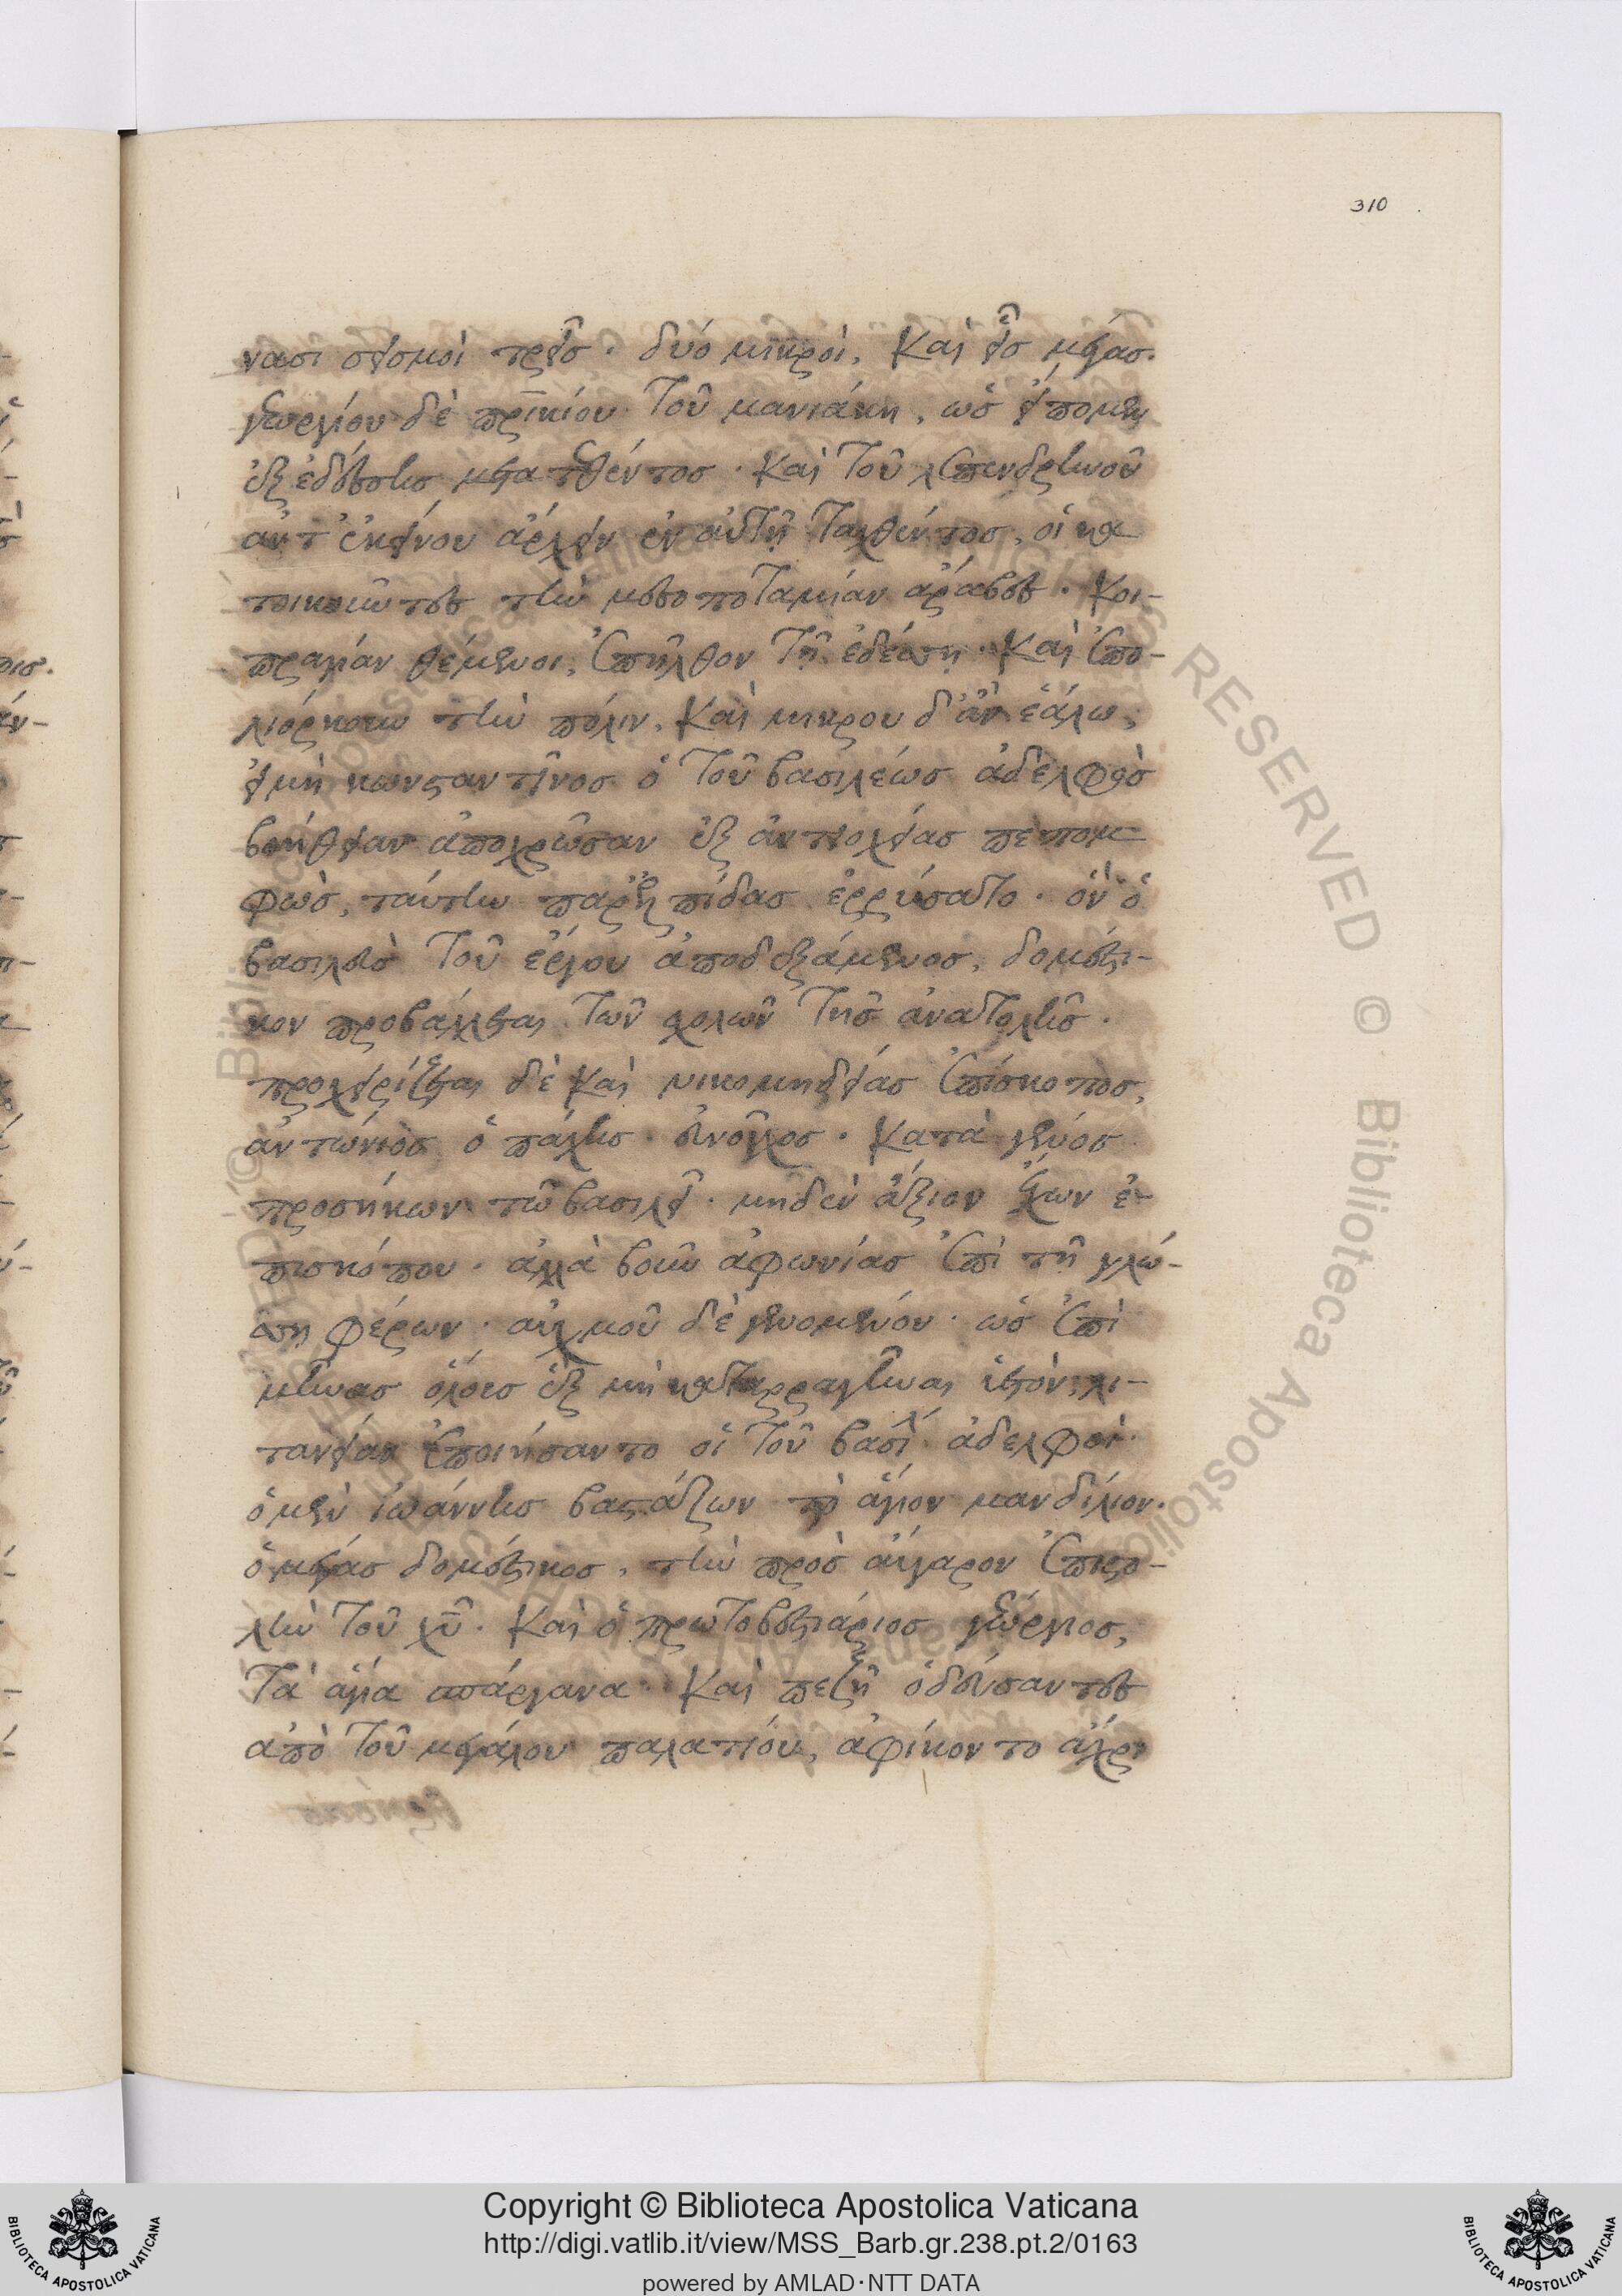 310
νασι σεισμοὶ τρεῖς. δύο μικροί, καὶ εἷς μέγας.
γεωργίου δὲ πρικίου τοῦ μανιάκη, ὡς εἴπομεν
ἐξ ἐδέσσης μετατεθέντος. καὶ τοῦ λεπενδρηνοῦ
ἀντ' ἐκείνου ἄρχειν ἐν αὐτῇ ταχθέντος, οἱ κα
τοικοῦντες τὴν μεσοποταμίαν ἄραβες. κοι-
πραγίαν θέμενοι, ἐπῆλθον τῇ ἐδέσῃ. καὶ ἐπο-
λιόρκουν τὴν πόλιν, καὶ μικροῦ δ' ἂν ἑάλω,
εἰ μὴ κωνσταντῖνος ὁ τοῦ βασιλέως ἀδελφὸς
βοήθειαν ἀποχρῶσαν ἐξ ἀντιοχείας πεπομ
φὼς, ταύτην παρ' ἐλπίδας ἐρρύσατο. ὃν ὁ
βασιλεὺς τοῦ ἔργου ἀποδεξάμενος, δομέστι-
κον προβάλλεται τῶν σχολῶν τῆς ἀνατολῆς.
προχειρίζεται δὲ καὶ νικομηδείας ἐπίσκοπος,
ἀντώνιος ὁ πάχης. εὐνοῦχος. κατὰ γένος
προσήκων τῷ βασιλεῖ. μηδὲν ἄξιον ἔχων ἐ-
πισκόπου. ἀλλὰ βοῦν ἀφωνίας ἐπὶ τῇ γλώ-
σσῃ φέρων. αὐχμοῦ δὲ γενομένου. ὡς ἐπὶ
μῆνας ὅλοις ἓξ μὴ καταρραγῆναι ὑετόν, λι-
τανείαν ἐποιήσαντο οἱ τοῦ βασιλέ ἀδελφοί.
ὁ μὲν ἰωάννης βαστάζων τὸ ἅγιον μανδίλιον.
ὁ μέγας δομέστικος, τὴν πρὸς αὔγαρον ἐπιστο-
λὴν τοῦ χῦ. καὶ ὁ πρωτοβεστιάριος γεώργιος,
τὰ ἅγια σπάργανα. καὶ πεζῇ ὁδεύσαντες
ἀπὸ τοῦ μεγάλου παλατίου, ἀφίκοντο ἄχρι
Copyright © Biblioteca Apostolica Vaticana
http://digi.vatlib.it/view/MSS_Barb.gr.238.pt.2/0163
powered by AMLAD·NTT DATA